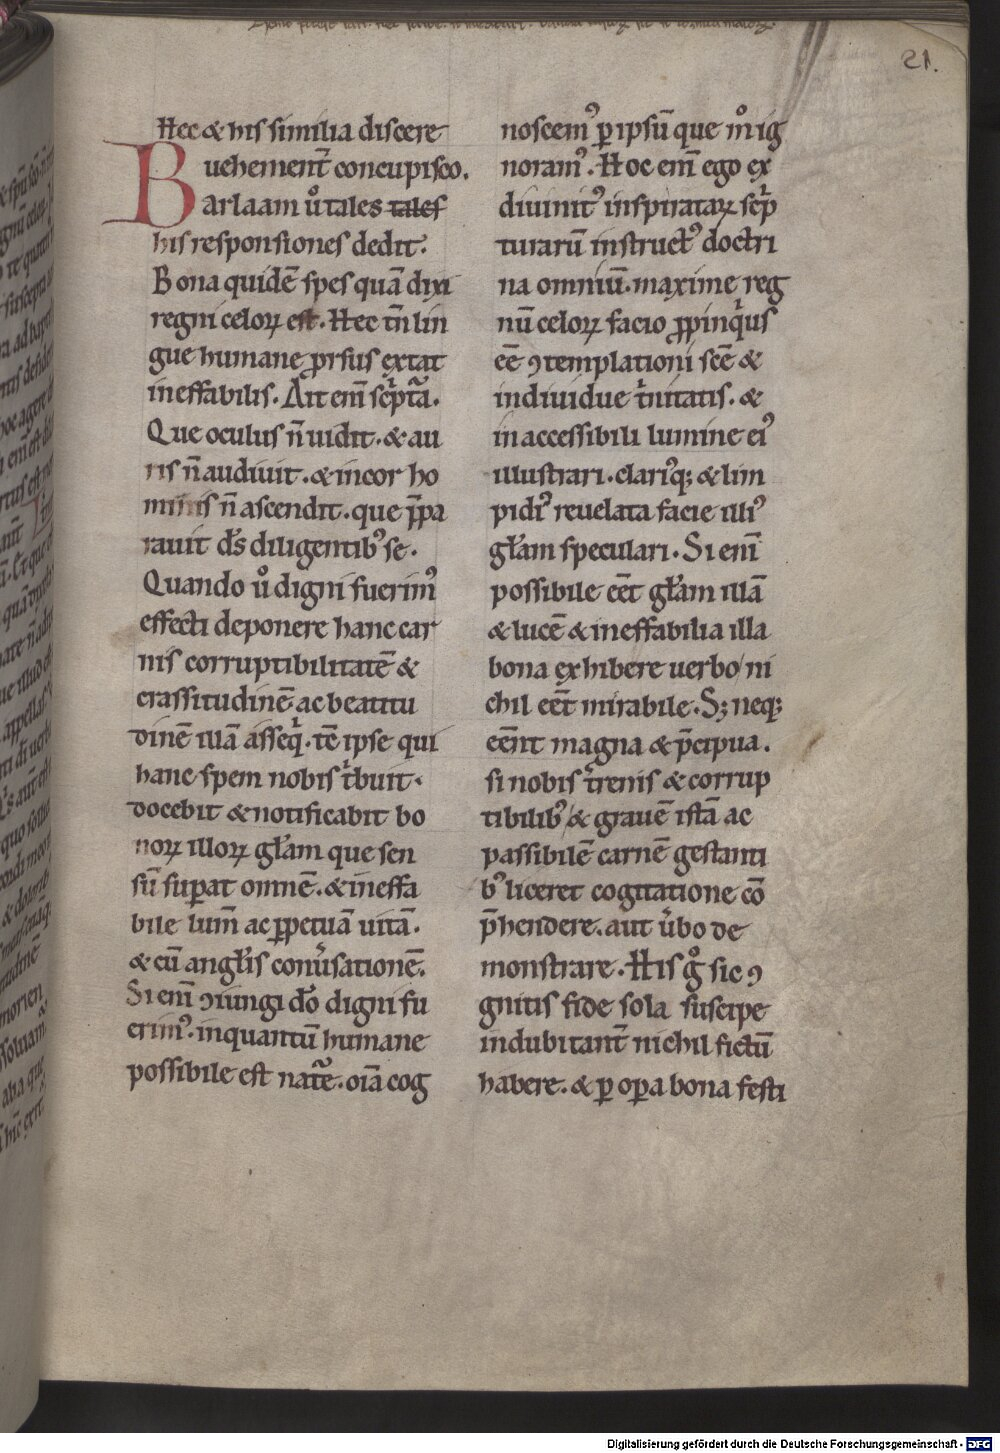 21.
Hec & his similia discere
uehement̄ concupisco.
Barlaam u̾ tales tales
his responsiones dedit.
Bona quidē spes quā dixi
regni celoꝝ est. Hec tn̄ lin
gue humane ꝓrsus extat
ineffabilis. Ait em̄ sc̾pta̾.
Que oculus n̄ uidit. & au
ris n̄ audiuit. & in cor ho
minis n̄ ascendit. que p̄pa
rauit ds̄ diligentibꝰ se.
Quando u̾o digni fuerimꝰ
effecti deponere hanc car
nis corruptibilitatē &
crassitudinē ac beatitu
dinē illā asseq̾. tē ipse qui
hanc spem nobis t̾buit.
docebit & notificabit bo
noꝝ illoꝝ gl̄am que sen
sū suꝑat omnē. & ineffa
bile lum̄ ac ꝑpetuā uitā.
& cū angl̄is conu̾sationē.
Si em̄ ꝯiungi do̅ digni fu
erimꝰ. inquantū humane
possibile est nat̄e. oīa cog
noscemꝰ ꝑ ipsū que m̊ ig
noramꝰ. Hoc em̄ ego ex
diuinitꝰ inspirataꝝ sc̾p
turarū instructꝰ doctri
na omniū. maxime reg
nū celoꝝ facio ꝓpinq̾us
eē̄ ꝯtemplationi scē &
indiuidue t̾nitatis. &
inaccessibili lumine eiꝰ
illustrari. clariꝰqꝫ & lim
pidiꝰ reuelata facie illiꝰ
gl̄am speculari. Si enī
possibile eēt gl̄am illā
& lucē & ineffabilia illa
bona exhibere uerbo / ni
chil eēt mirabile. Sꝫ neqꝫ
eēnt magna & p̄cipua.
si nobis t̾renis & corrup
tibilibꝰ / & grauē istā ac
passibilē carnē gestanti
bꝰ liceret cogitatione cō
p̄hendere. aut u̾bo de
monstrare. His g̊ sic ꝯ
gnitis fide sola suscipe
indubitant̄ nichil fictū
habere. & ꝑ oꝑa bona festi
Digitalisierung gefördert durch die Deutsche Forschungsgemeinschaft - DFG